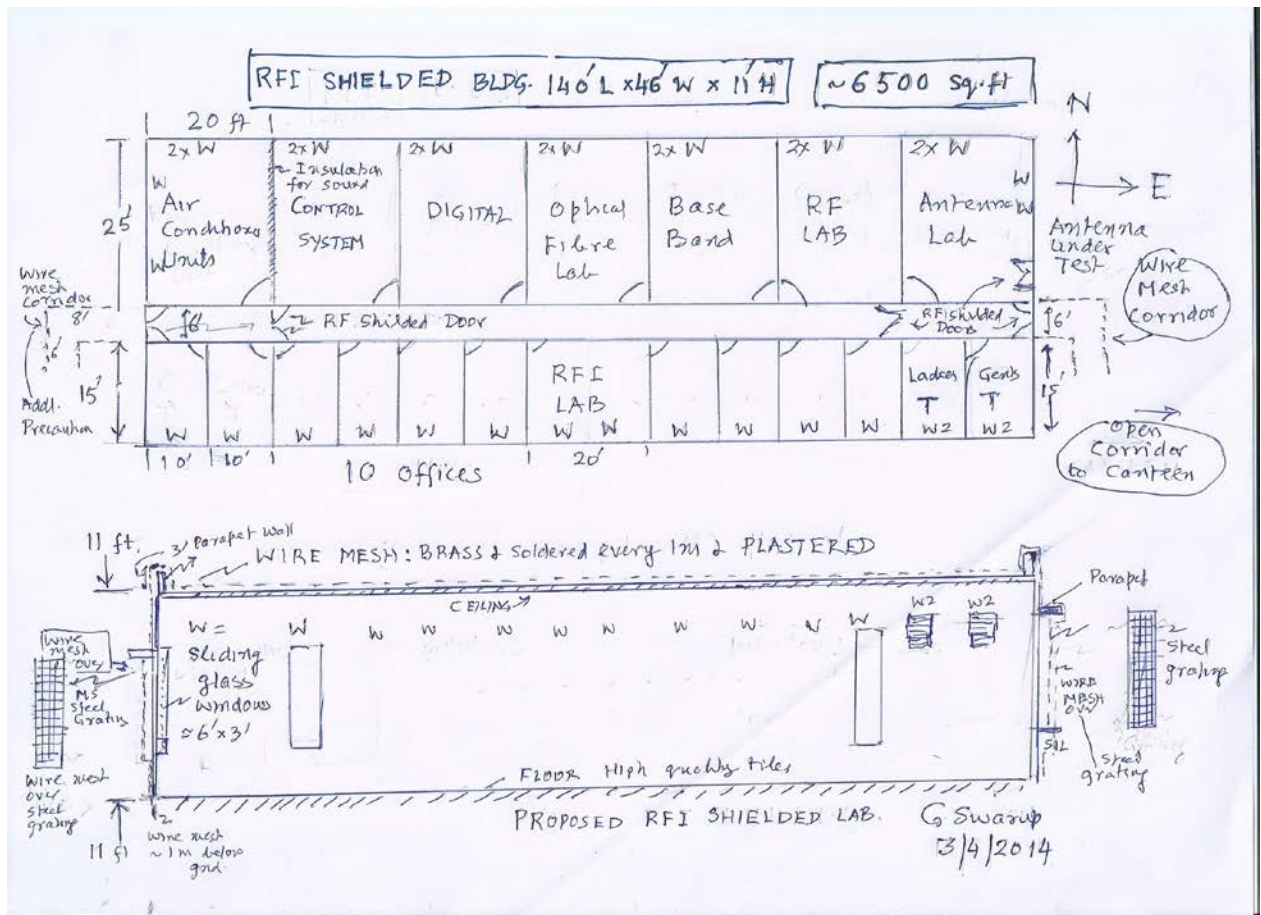 RFI SHIELDED. BLDG. 140' L x46' W x 11' H
~6500 Sq.ft
N
E
20 ft
2x W
2x W
2x W
2x W
2x W
2x W
2x W
W
Air
Conditioner
Units
W
Insulation
for sound
CONTROL
SYSTEM
DIGITAL
Optical
Fibre
Lab
Base
Band
RF
LAB
Antenna
Lab
W
W
25'
Antenna
Under
Test
Wire
Mesh
Corridor
Wire
mesh
Corridor
8'
6'
6'
RF Shilded Door
RF Shilded
Doors
6'
Addl.
Precaution
15'
RFI
LAB
Ladies
T
Gents
T
15'
W
W
W
W
W
W
W
W
W
W
W
W
W2
W2
10'
10'
10 offices
20'
Open
Corridor
to Canteen
11 ft.
3' Parapet Wall
WIRE MESH: BRASS & Soldered every 1m & PLASTERED
CEILING
Parapet
W =
Sliding
glass
windows
≈ 6' x 3'
W
W
W
W
W
W
W
W
W
W
W2
W2
Wire
mesh
over
MS
Steel
Grating
Wire mesh
over
Steel
grating
Steel
grating
WIRE
MESH
OVER
Steel
grating
FLOOR High quality tiles
11 ft
Wire mesh
~1m below
gnd.
PROPOSED RFI SHIELDED LAB.
G Swarup
3/4/2014